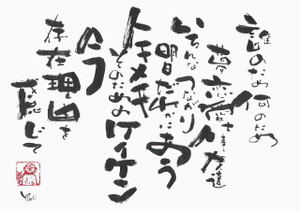 誰のため何のため
夢恋愛
いろんなつながり
明日だれかにあう
トキメキ
そのためのケイケン
今
存在理由を
感じて